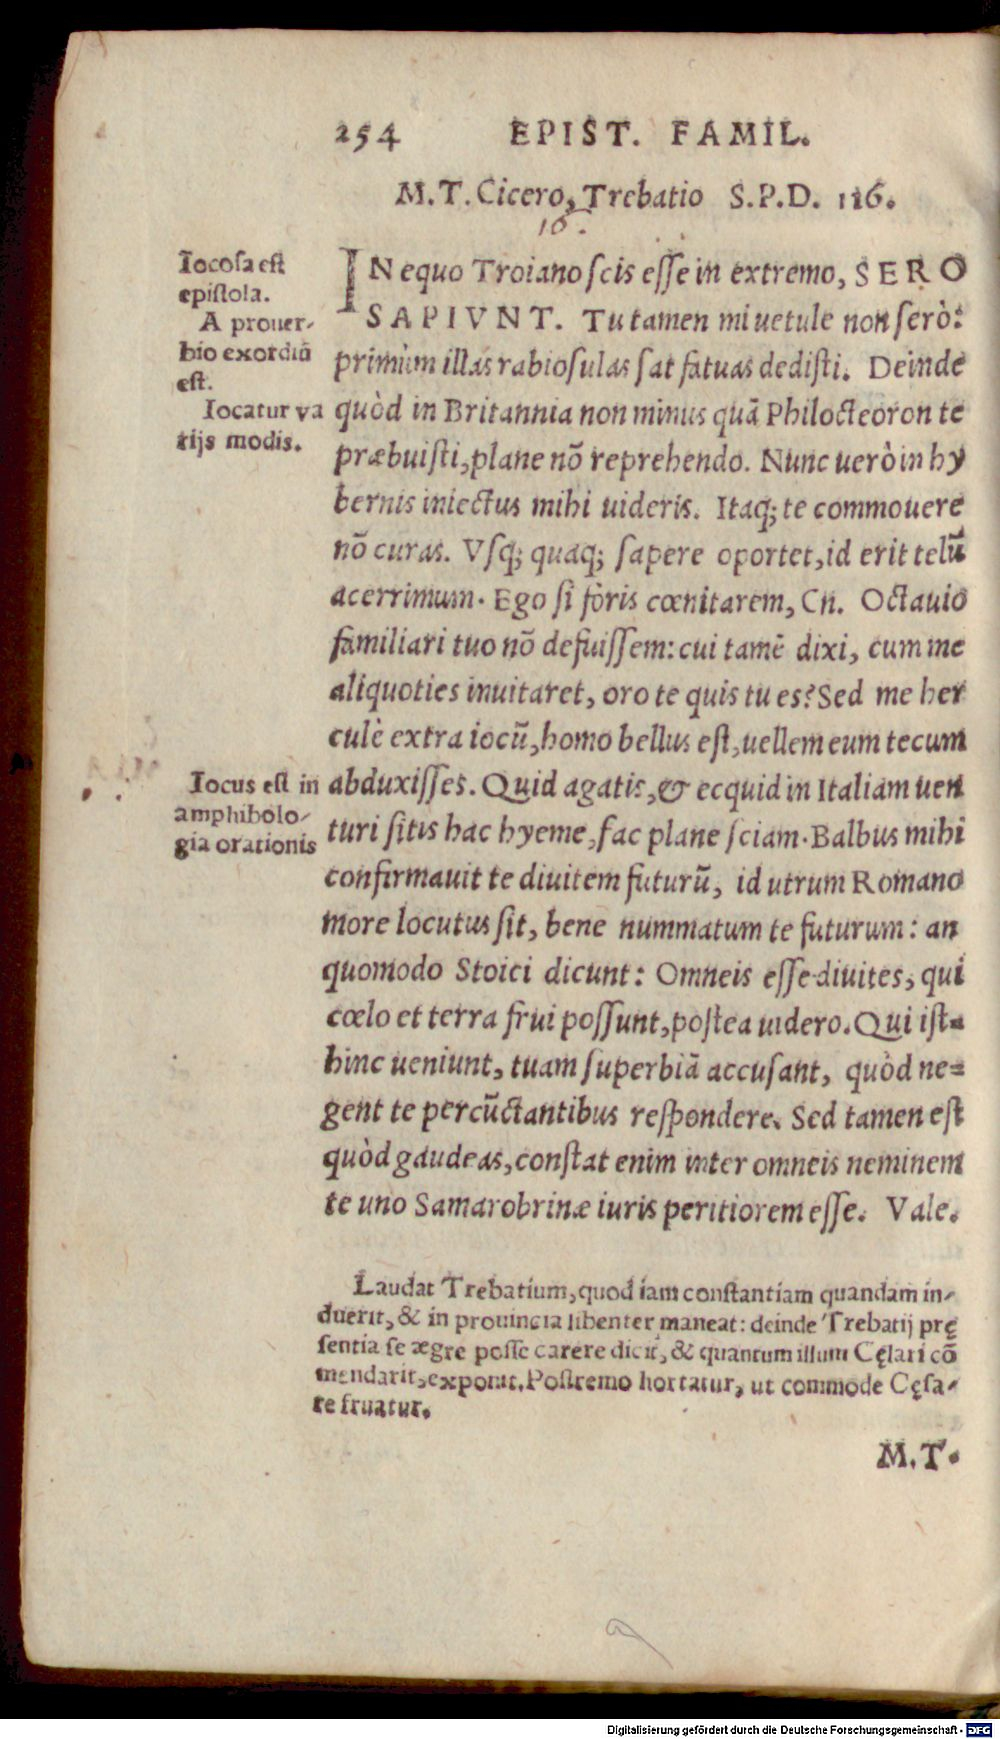 254 EPIST. FAMIL.
M.T. Cicero, Trebatio S.P.D. 116.
16.
Iocosa est
epistola.
A prouer-
bio exordiũ
est.
Iocatur va
rijs modis.
IN equo Troiano scis esse in extremo, SERO
SAPIVNT. Tu tamen mi uetule non serò:
primùm illas rabiosulas sat fatuas dedisti. Deinde
quòd in Britannia non minus quã Philocteoron te
præbuisti, plane nõ reprehendo. Nunc uerò in hy
bernis iniectus mihi uideris. Itaq; te commouere
nõ curas. Vsq; quaq; sapere oportet, id erit telũ
acerrimum. Ego si fòris cœnitarem, Cn. Octauio
familiari tuo nõ defuissem: cui tamẽ dixi, cum me
aliquoties inuitaret, oro te quis tu es? Sed me her
culè extra iocũ, homo bellus est, uellem eum tecum
Iocus est in
amphibolo-
gia orationis
abduxisses. Quid agatis, & ecquid in Italiam uen
turi sitis hac hyeme, fac plane sciam. Balbus mihi
confirmauit te diuitem futurũ, id utrum Romano
more locutus sit, bene nummatum te futurum: an
quomodo Stoici dicunt: Omneis esse diuites, qui
cœlo et terra frui possunt, postea uidero. Qui ist-
hinc ueniunt, tuam superbiã accusant, quòd ne=
gent te percũctantibus respondere. Sed tamen est
quòd gaudeas, constat enim inter omneis neminem
te uno Samarobrinæ iuris peritiorem esse. Vale.
Laudat Trebatium, quod iam constantiam quandam in-
duerit, & in prouincia libenter maneat: deinde Trebatij prę
sentia se ægre posse carere dicit, & quantum illum Cęsari cõ
mendarit, exponit. Postremo hortatur, ut commode Cęsa-
re fruatur.
M.T.
Digitalisierung gefördert durch die Deutsche Forschungsgemeinschaft - DFG